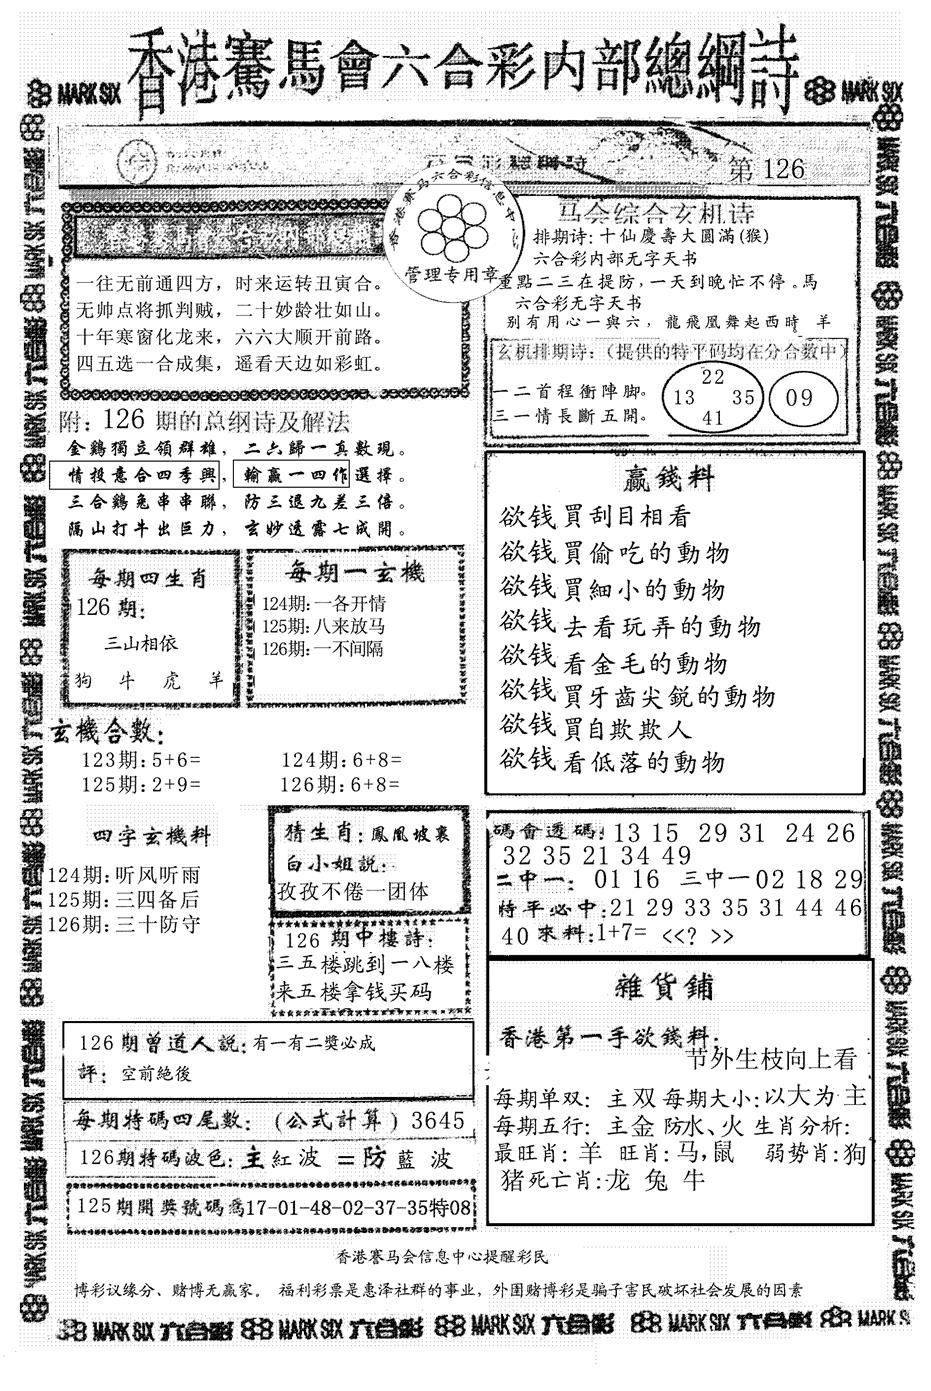 香港賽馬會六合彩内部總綱詩
MARK SIX
MARK SIX
第 126
香港赛马六合彩信息中心
管理专用章
一往无前通四方，时来运转丑寅合。
无帅点将抓判贼，二十妙龄壮如山。
十年寒窗化龙来，六六大顺开前路。
四五选一合成集，遥看天边如彩虹。
马会综合玄机诗
排期诗:十仙慶壽大圆滿(猴)
六合彩内部无字天书
重點二三在提防,一天到晚忙不停。馬
六合彩无字天书
别有用心一與六，龍飛凰舞起西時 羊
玄机排期诗:(提供的特平码均在分合数中)
一二首程衝陣脚。
三一情長斷五開。
22
13 35
41
09
附: 126 期的总纲诗及解法
金鷄獨立领群雄，二六歸一真數現。
情投意合四季興，輸贏一四作選擇。
三合鷄兔串串聯，防三退九差三倍。
隔山打牛出巨力，玄妙透露七成開。
每期四生肖
126 期:
三山相依
狗 牛 虎 羊
每期一玄機
124期:一各开情
125期:八来放马
126期:一不间隔
贏錢料
欲钱買刮目相看
欲钱買偷吃的動物
欲钱買細小的動物
欲钱去看玩弄的動物
欲钱看金毛的動物
欲钱買牙齒尖鋭的動物
欲钱買自欺欺人
欲钱看低落的動物
玄機合數:
123期:5+6= 124期:6+8=
125期:2+9= 126期:6+8=
四字玄機料
124期:听风听雨
125期:三四备后
126期:三十防守
猜生肖:鳳凰坡裏
白小姐説:
孜孜不倦一团体
126 期中樓詩:
三五楼跳到一八楼
来五楼拿钱买码
碼會透碼:13 15 29 31 24 26
32 35 21 34 49
二中一: 01 16 三中一02 18 29
特平必中:21 29 33 35 31 44 46
40 來料:1+7= <<? >>
126期曾道人説:有一有二獎必成
評: 空前絶後
每期特碼四尾數: (公式計算) 3645
126期特碼波色:主紅波=防藍波
125期開獎號碼爲17-01-48-02-37-35特08
雜貨鋪
香港第一手欲錢料:
节外生枝向上看
每期单双: 主双 每期大小:以大为主
每期五行: 主金 防水、火 生肖分析:
最旺肖: 羊 旺肖:马,鼠 弱势肖:狗
猪死亡肖:龙 兔 牛
香港賽马会信息中心提醒彩民
博彩议缘分、赌博无赢家。 福利彩票是惠泽社群的事业，外围赌博彩是骗子害民破坏社会发展的因素
MARK SIX 六合彩 MARK SIX 六合彩 MARK SIX 六合彩 MARK SIX 六合彩 MARK SIX